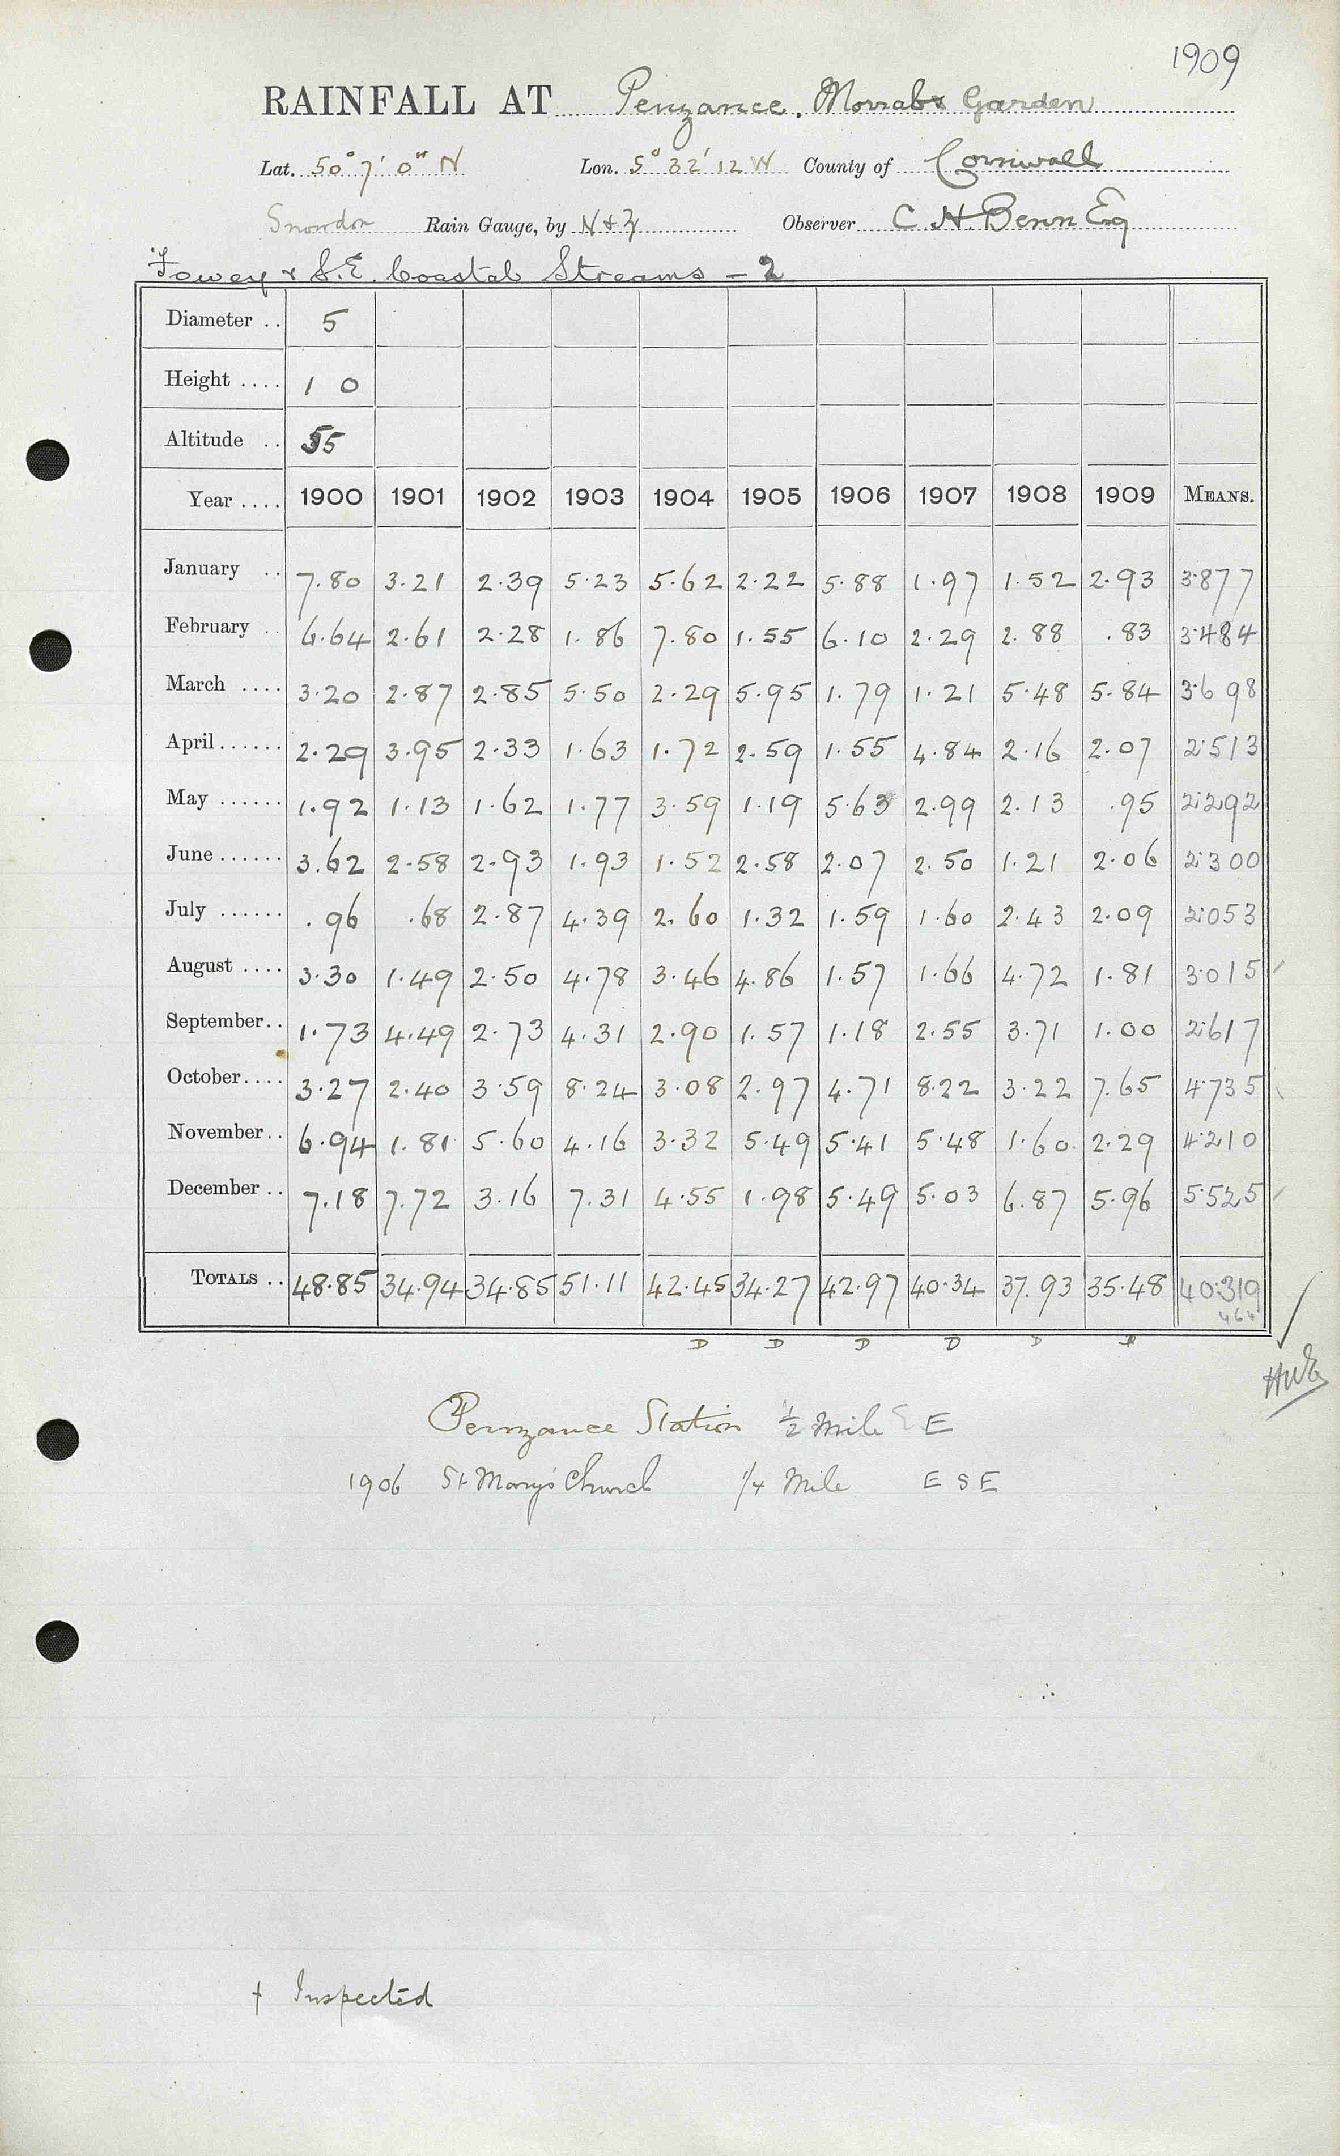 1909
RAINFALL AT Penzance. Morrab Garden
Lat. 50° 7' 0" N Lon. 5° 32' 12 W County of Cornwall
Snowdon Rain Gauge, by N & Z Observer C. H. Benn Esq
Fowey & S.E. Coastal Streams - 2
Diameter .. 5
Height .... 1 0
Altitude .. 55
Year .... 1900 1901 1902 1903 1904 1905 1906 1907 1908 1909 MEANS.
January .. 7.80 3.21 2.39 5.23 5.62 2.22 5.88 1.97 1.52 2.93 3.877
February .. 6.64 2.61 2.28 1.86 7.80 1.55 6.10 2.29 2.88 .83 3.484
March .... 3.20 2.87 2.85 5.50 2.29 5.95 1.79 1.21 5.48 5.84 3.698
April ...... 2.29 3.95 2.33 1.63 1.72 2.59 1.55 4.84 2.16 2.07 2.513
May ...... 1.92 1.13 1.62 1.77 3.59 1.19 5.63 2.99 2.13 .95 2.292
June ...... 3.62 2.58 2.93 1.93 1.52 2.58 2.07 2.50 1.21 2.06 2.300
July ...... .96 .68 2.87 4.39 2.60 1.32 1.59 1.60 2.43 2.09 2.053
August .... 3.30 1.49 2.50 4.78 3.46 4.86 1.57 1.66 4.72 1.81 3.015
September.. 1.73 4.49 2.73 4.31 2.90 1.57 1.18 2.55 3.71 1.00 2.617
October.... 3.27 2.40 3.59 8.24 3.08 2.97 4.71 8.22 3.22 7.65 4.735
November.. 6.94 1.81 5.60 4.16 3.32 5.49 5.41 5.48 1.60 2.29 4.210
December .. 7.18 7.72 3.16 7.31 4.55 1.98 5.49 5.03 6.87 5.96 5.525
TOTALS .. 48.85 34.94 34.85 51.11 42.45 34.27 42.97 40.34 37.93 35.48 40.319
464
D D D D D
Penzance Station ½ Mile E
1906 St Mary's Church ¼ Mile E S E
† Inspected